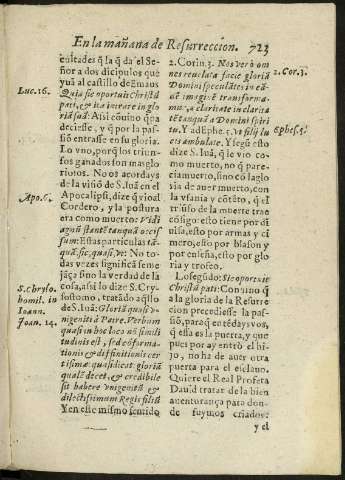 En la mañana de Resurreccion. 723
cultades q̃ la q̃ da el Se-
ñor a dos dicipulos que
yuā al castillo de Emaus
Luc. 16.
Quia sic oportuit Christũ
pati, & ita intrare in glo-
riā suā: Assi cōuino q̃ pa
deciesse, y q̃ por la pas-
siō entrasse en su gloria.
Lo vno, porq̃ los triun-
fos ganados son mas glo
riosos. No os acordays
de la visiō de S. Iuā en el
Apo. 6.
Apocalipsi, dize q̃ vio al
Cordero, y la postura
era como muerto: Vidi
agnũ stantē tanquā occi
sum: Estas particulas tā-
quā, sic, quasi, vt: No to-
das vezes significā seme
jāça sino la verdad de la
S. Chryso.
homil. in
Ioann.
Ioan. 14.
cosa, assi lo dize S. Cry-
sostomo, tratādo aq̃llo
de S. Iuā: Gloriā quasi v-
nigeniti à Patre. Verbum
quasi in hoc loco nō simili
tudinis est, sed cōformatio-
nis & diffinitionis cer
tissimæ quasi dicat gloriā
qualē decet, & credibile
sit habere vnigenitũ &
dilectissimum Regis filiũ
Y en este mismo sentido
2. Corin. 3. Nos verò om
2. Cor. 3.
nes reuelata facie gloriā
Domini speculātes in eā-
dē imaginē transforma-
mur, à claritate in clarita
tē tanquā à Domini spiri-
tu. Y ad Ephe. 5. vt filij lu
Ephes. 5.
cis ambulate. Y segũ esto
dize S. Iuā, que le vio co
mo muerto, no q̃ pare-
cia muerto, sino cō la glo
ria de auer muerto, con
la vfania y cōtēto, q̃ el
triũfo de la muerte trae
cōsigo: esto tiene por di
uisa, esto por armas y ci
mera, esto por blason y
por enseña, esto por glo
ria y trofeo.
Lo segũdo: Sic oportuit
Christũ pati: Conuino q̃
a la gloria de la Resurre
cion precediesse la pas-
siō, paraq̃ entēdays vos,
q̃ essa es la puerta, y que
pues por ay entrò el hi-
jo, no ha de auer otra
puerta para el esclauo.
Quiere el Real Profeta
Dauid tratar de la bien
auenturança para don-
de fuymos criados:
y el